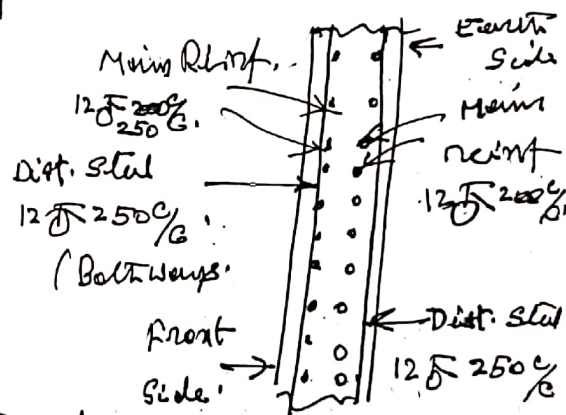 Main Reinf.
12 Ꞙ 250 C/C.
Dist. Steel
12 Ꞙ 250 C/C.
(Both ways.
Front
Side.
Earth
Side
Main
reinf
12 Ꞙ 200 C/C
Dist. Steel
12 Ꞙ 250 C/C